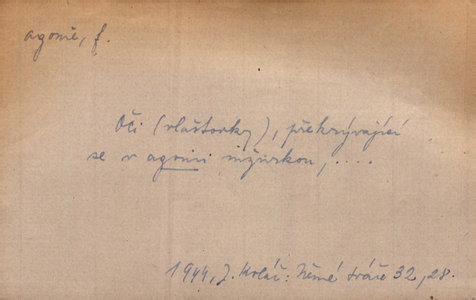 agonie, f.
Oči (vlaštovky), překrývající
se v agonii mžurkou, ....
1944, J. Kolář: Němé tváře 32, 28.